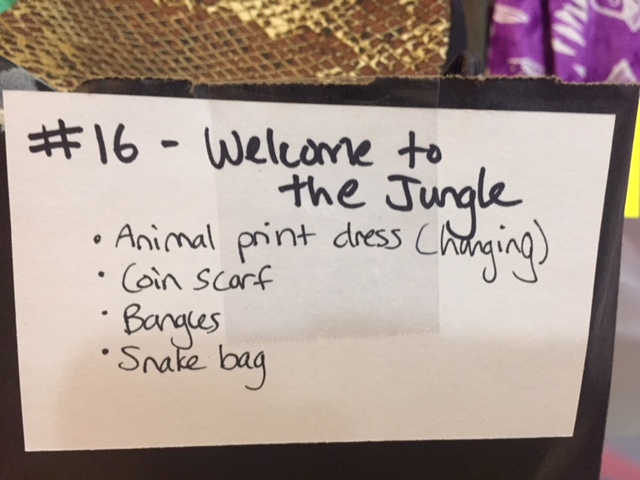 #16 - Welcome to
the Jungle
• Animal print dress (hanging)
• Coin scarf
• Bangles
• Snake bag